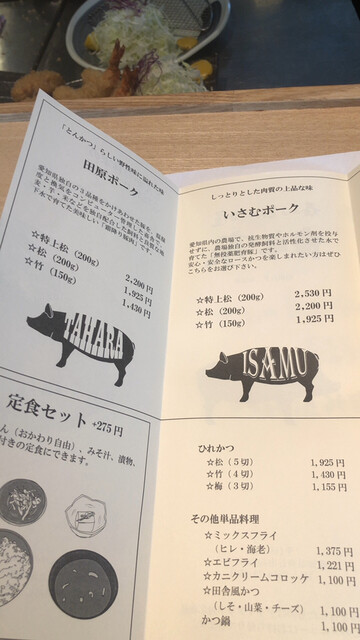 「とんかつ」らしい野性味に溢れた味
田原ポーク
愛知県独自の3品種をかけあわせた豚を、
下水で育てた美味しい「霜降り豚肉」です。
☆特上松（200g） 2,200円
☆松（200g） 1,925円
☆竹（150g） 1,430円
TAHARA
定食セット +275円
ん（おかわり自由）、みそ汁、漬物、
付きの定食にできます。
しっとりとした肉質の上品な味
いさむポーク
愛知県内の農場で、抗生物質やホルモン剤を投与
せずに、農場独自の発酵飼料と活性化させた水で
育てた「無投薬肥育豚」です。
安心・安全なロースかつを楽しまれたい方はぜひ
こちらをお選び下さい。
☆特上松（200g） 2,530円
☆松（200g） 2,200円
☆竹（150g） 1,925円
ISAMU
ひれかつ
☆松（5切） 1,925円
☆竹（4切） 1,430円
☆梅（3切） 1,155円
その他単品料理
☆ミックスフライ
（ヒレ・海老） 1,375円
☆エビフライ 1,221円
☆カニクリームコロッケ 1,100円
☆田舎風かつ
（しそ・山菜・チーズ） 1,100円
かつ鍋 1,100円